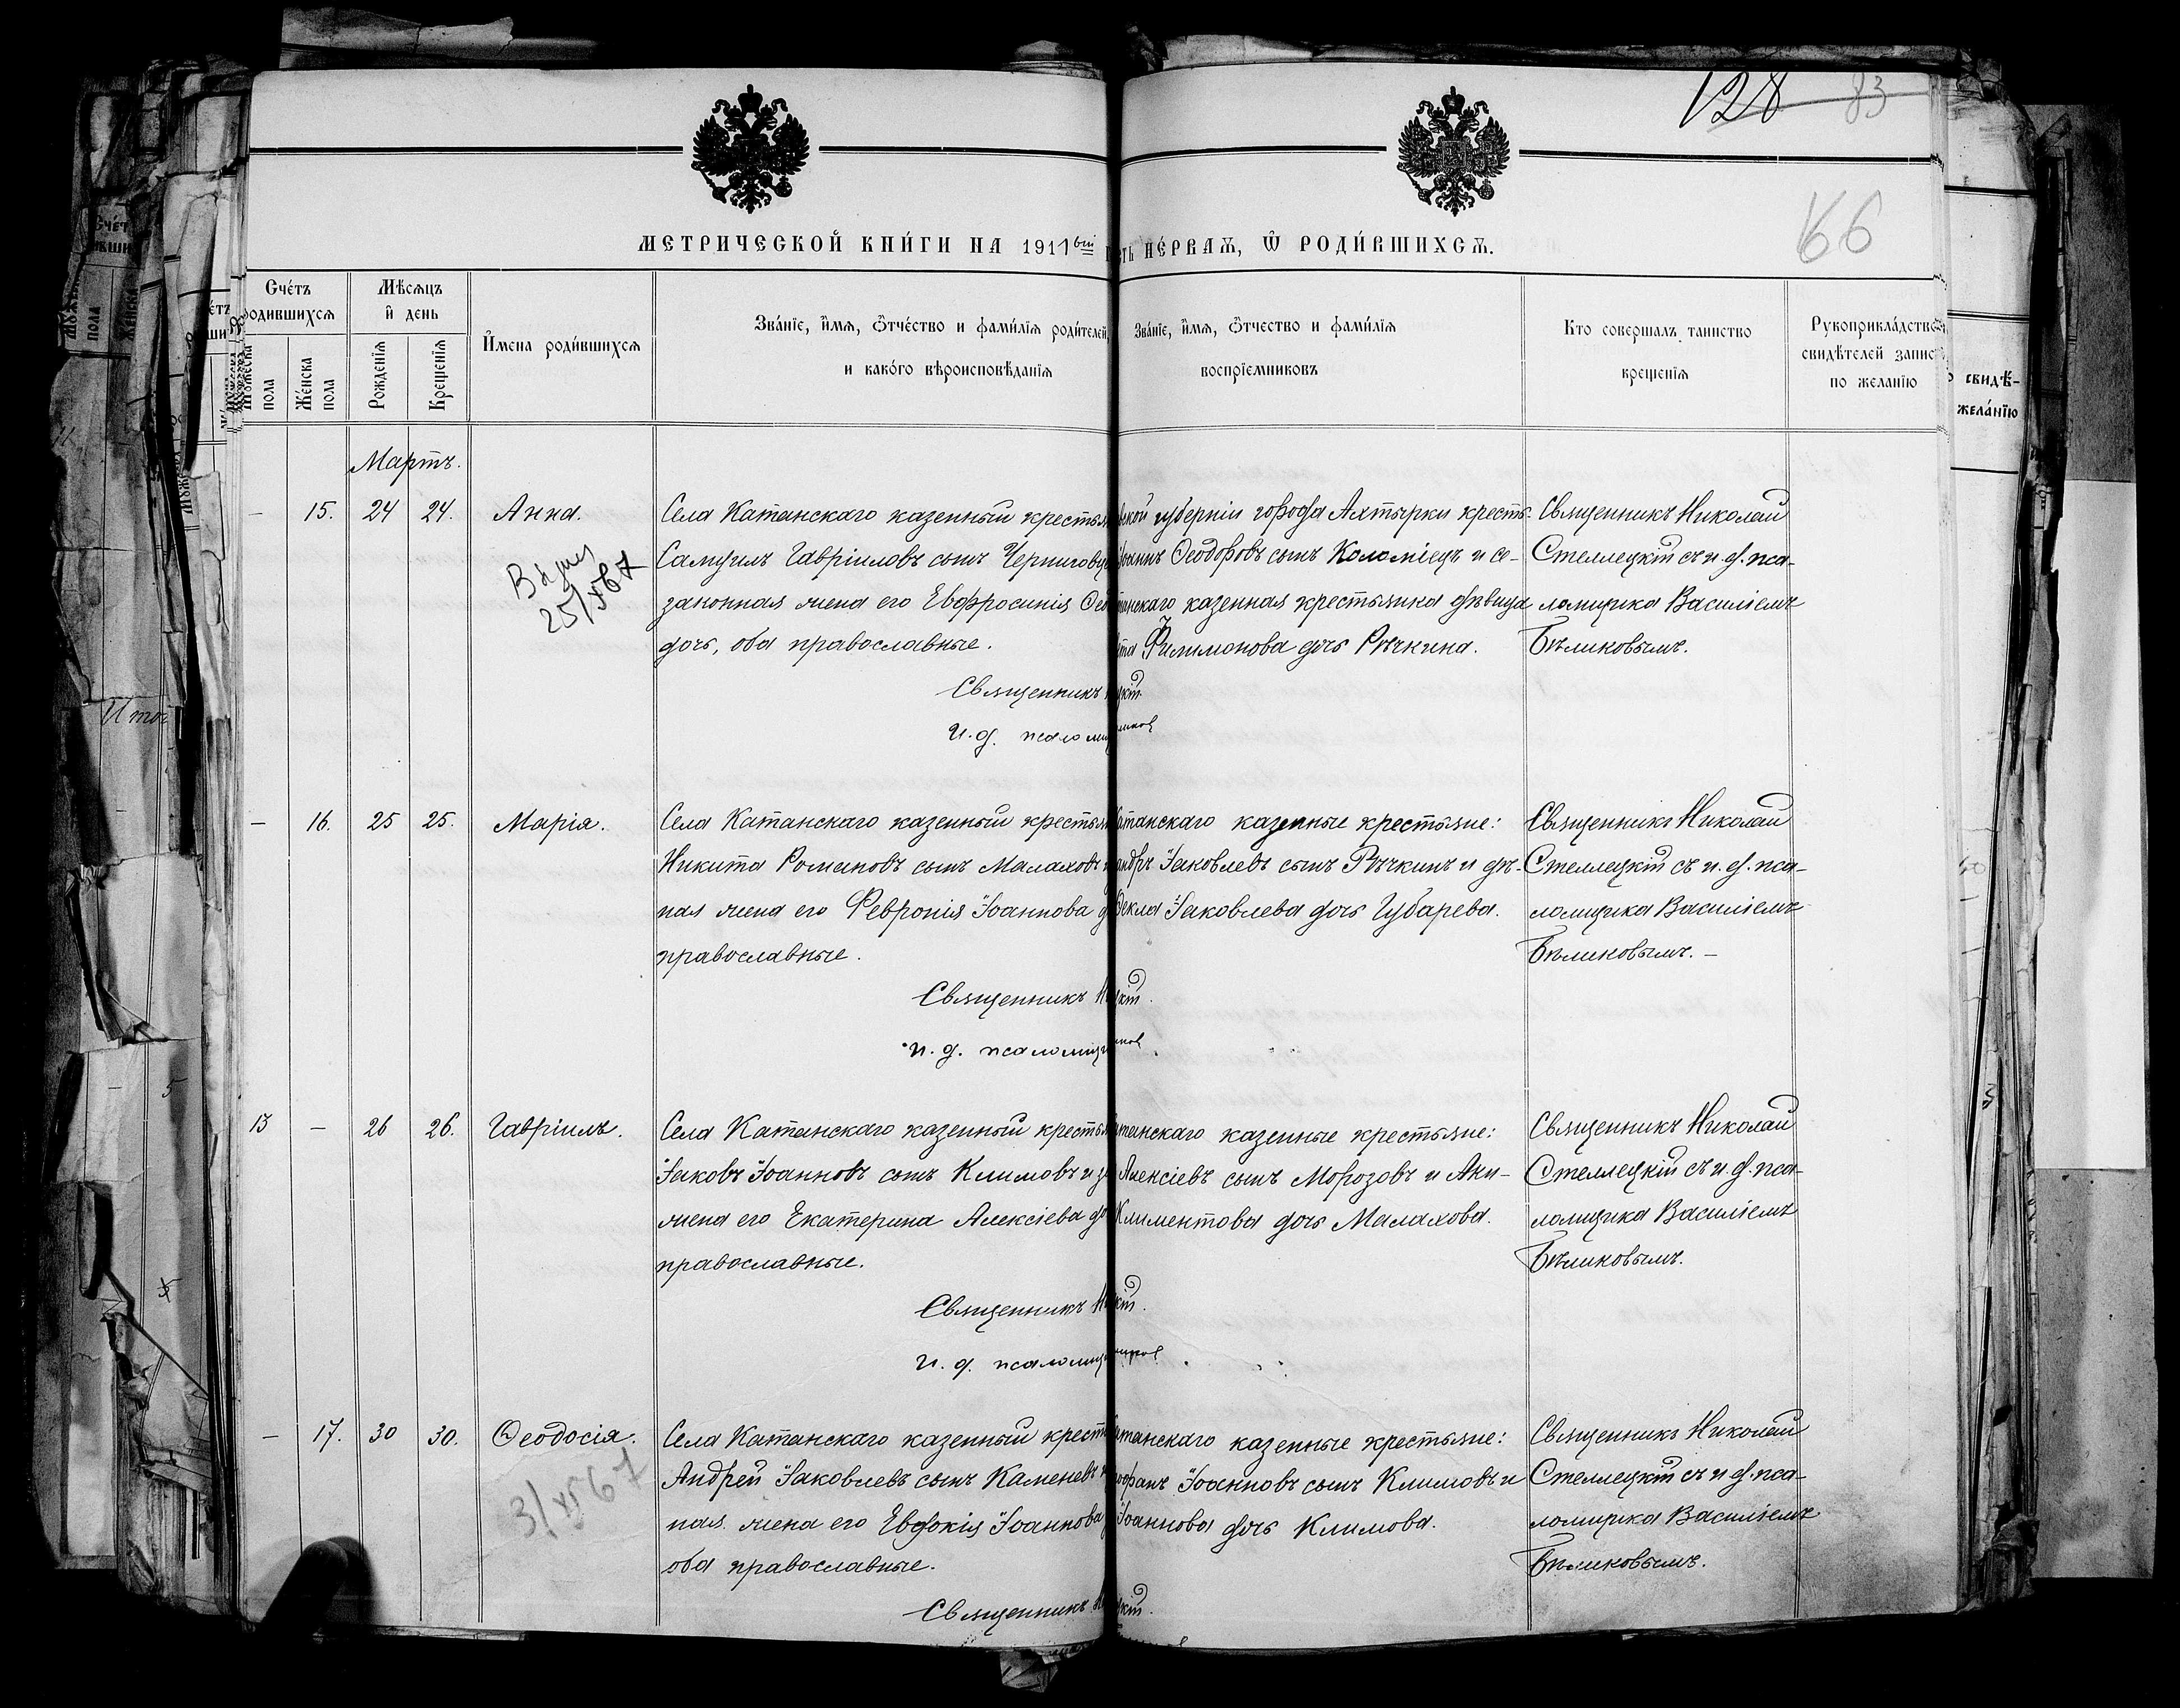 128 83
66
МЕТРИЧЕСКОЙ КНИ́ГИ НА 1911ый
НЕ́РВАѦ, Ѿ РОДИ́ВШИХСѦ.
Сче́тъ
родившихсѧ
Мѣсѧцъ
и҆ день
И҆мена роди́вшихсѧ
Зва́нїе, и҆́мѧ, ѻ҆́тче́ство и фами́лїѧ роди́телей,
и како́го вѣроисповѣ́данїѧ
Зва́нїе, и҆́мѧ, ѻ҆́тче́ство и фами́лїѧ
воспрїемниковъ
Кто совершалъ таинство
крещенїѧ
Рукоприкла́дство
свидѣ́телей запис
по жела́нїю
пола
Же́нска
пола
Рожденїѧ
Крещенїѧ
свидѣ́-
жела́нїю
Мартъ.
— 15. 24 24. Анна.
Села Катанскаго казенный крестья
Самуилъ Гавріиловъ сынъ Чернигов
законная жена его Евфросинія Ѳео
дочь, оба православные.
Священникъ
И. д. псалом
25/XI 67
ской губерніи города Ахтырки кресть-
Іоаннъ Ѳеодоровъ сынъ Коломіецъ и се-
танскаго казенная крестьянка дѣвица
Филимонова дочь Рѣчкина.
цкій
иков
Священникъ Николай
Стеллецкій съ и. д. пса-
ломщика Василіемъ
Бѣликовымъ.
— 16. 25 25. Марія.
Села Катанскаго казенный крестьян
Никита Романовъ сынъ Малаховъ
ная жена его Февронія Іоаннова
православные.
Священникъ Н
и. д. псаломщ
атанскаго казенные крестьяне:
андръ Іаковлевъ сынъ Рѣчкинъ и дѣ-
Ѳекла Іаковлева дочь Губарева.
цкій.
Священникъ Николай
Стеллецкій съ и. д. пса-
ломщика Василіемъ
Бѣликовымъ. —
13 — 26 26. Гавріилъ.
Села Катанскаго казенный крестья
Іаковъ Іоанновъ сынъ Климовъ и за
жена его Екатерина Алексіева до
православные.
Священникъ Н
И. д. псаломщ
танскаго казенные крестьяне:
Алексіевъ сынъ Морозовъ и Аки-
Климентова дочь Малахова.
цкій.
Священникъ Николай
Стеллецкій съ и. д. пса-
ломщика Василіемъ
Бѣликовымъ.
— 17. 30 30. Ѳеодосія.
Села Катанскаго казенный крест
Андрей Іаковлевъ сынъ Каменевъ
ная жена его Евдокія Іоаннова
оба православные.
Священникъ Н
3/XI 67
атанскаго казенные крестьяне:
рофанъ Іоанновъ сынъ Климовъ и
Іоаннова дочь Климова.
цкій.
Священникъ Николай
Стеллецкій съ и. д. пса-
ломщика Василіемъ
Бѣликовымъ.